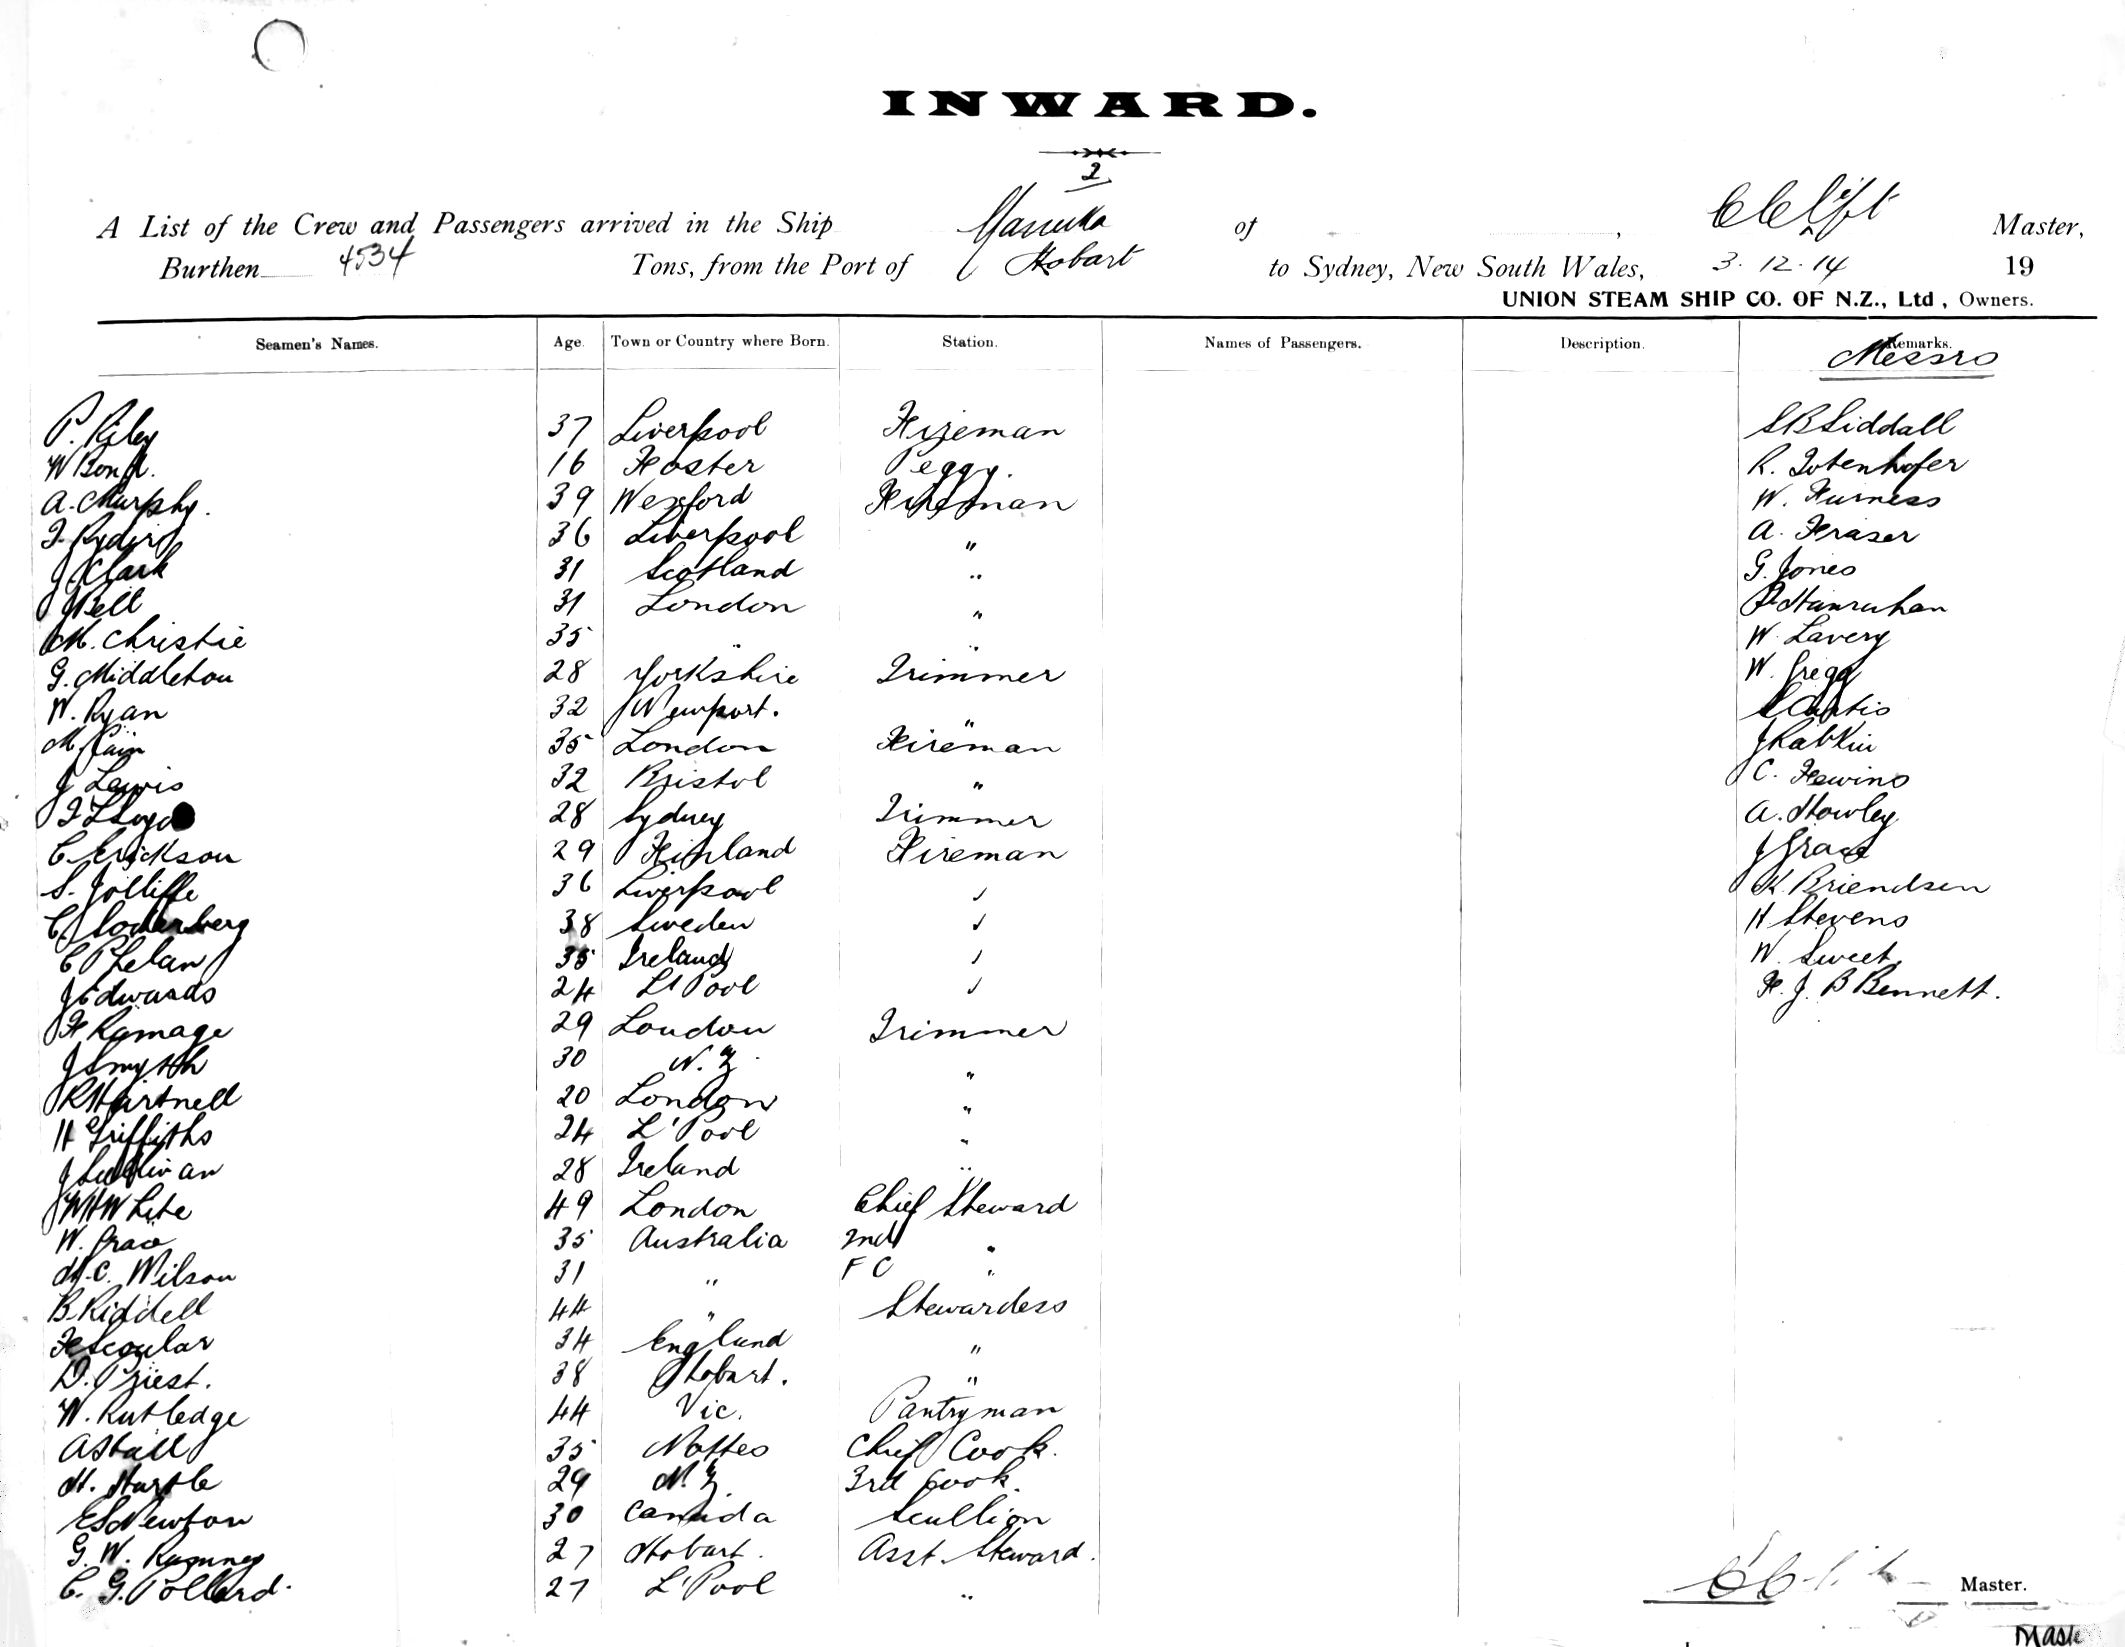 INWARD.
2
A List of the Crew and Passengers arrived in the Ship Manuka of , C Clift Master,
Burthen 4534 Tons, from the Port of Hobart to Sydney, New South Wales, 3.12.14 19
UNION STEAM SHIP CO. OF N.Z., Ltd, Owners.
Seamen's Names. Age. Town or Country where Born. Station. Names of Passengers. Description. Remarks.
Messrs
P. Riley 37 Liverpool Fireman S B Siddall
W Bond. 16 Foster Peggy. R. Totenhofer
A. Murphy. 39 Wexford Fireman W. Furness
36 Liverpool " A. Fraser
J Clark 31 Scotland " G. Jones
J Bell 31 London " Hanrahan
M. Christie 35 " " W. Lavery
G. Middleton 28 Yorkshire Trimmer W. Gregg
W. Ryan 32 Newport. " S Curtis
M Cain 35 London Fireman J Rabkin
J Lewis 32 Bristol " C. Fewins
T Lloyd 28 Sydney Trimmer A. Howley
C. Erickson 29 Finland Fireman J Grace
S. Jolliffe 36 Liverpool ✓ K. Briendsen
C. Soderberg 38 Sweden ✓ H Stevens
C Phelan 35 Ireland ✓ W. Sweet.
J Edwards 24 L'Pool ✓ F. J. B Bennett.
F Ramage 29 London Trimmer
J Smyth 30 N.Z. "
R Hartnell 20 London "
H Griffiths 24 L'Pool "
J Sullivan 28 Ireland "
W H White 49 London Chief Steward
W. Grace 35 Australia 2nd "
H. C. Wilson 31 " F C "
B. Riddell 44 " Stewardess
F Scoular 34 England "
D. Priest. 38 Hobart. "
W. Rutledge 44 Vic. Pantryman
A Stall 35 Notts Chief Cook.
H. Hartle 29 N.Z. 3rd Cook.
E S Newton 30 Canada Scullion
G. W. Rumney 27 Hobart. Asst. Steward.
C. G. Pollard. 27 L'Pool "
Master.
Mast